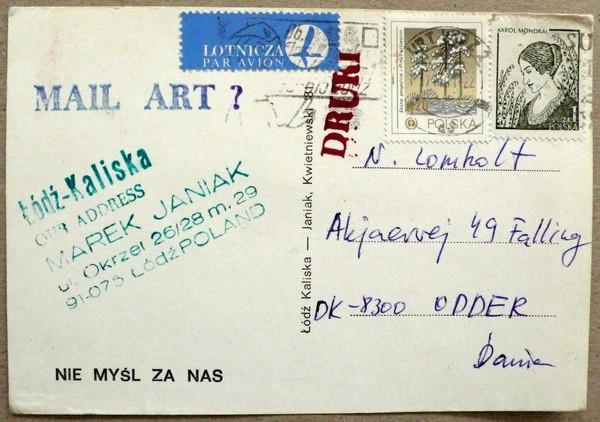 LOTNICZA
PAR AVION
MAIL ART?
Łódź-Kaliska
OUR ADDRESS
MAREK JANIAK
ul. Okrzei 26/28 m. 29
91-075 Łódź POLAND
NIE MYŚL ZA NAS
Łódź Kaliska — Janiak, Kwietniewski 81
DRUKI
POLSKA
KAROL MONDRAL
POLSKA
N. Lomholt
49 Falling
DK-8300 ODDER
Dania